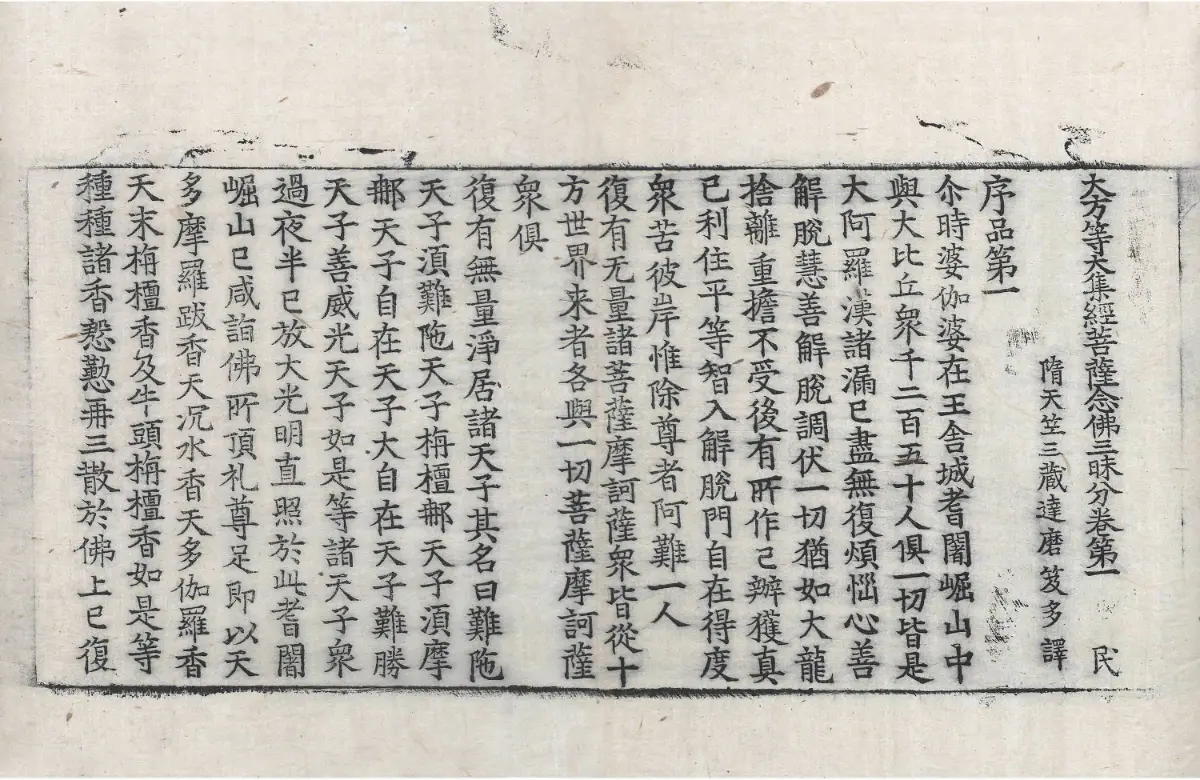 大方等大集經菩薩念佛三昧分卷第一 民
隋天竺三藏達磨笈多譯
序品第一
尒時婆伽婆在王舍城耆闍崛山中
與大比丘衆千二百五十人俱一切皆是
大阿羅漢諸漏已盡無復煩惱心善
解脫慧善解脫調伏一切猶如大龍
捨離重擔不受後有所作已辦獲真
己利住平等智入解脫門自在得度
衆苦彼岸惟除尊者阿難一人
復有无量諸菩薩摩訶薩衆皆從十
方世界来者各與一切菩薩摩訶薩
衆俱
復有無量淨居諸天子其名曰難陁
天子湏難陁天子栴檀𨚗天子湏摩
𨚗天子自在天子大自在天子難勝
天子善威光天子如是等諸天子衆
過夜半已放大光明直照於此耆闍
崛山已咸詣佛所頂礼尊足即以天
多摩羅跋香天沉水香天多伽羅香
天末栴檀香及牛頭栴檀香如是等
種種諸香慇懃再三散於佛上已復